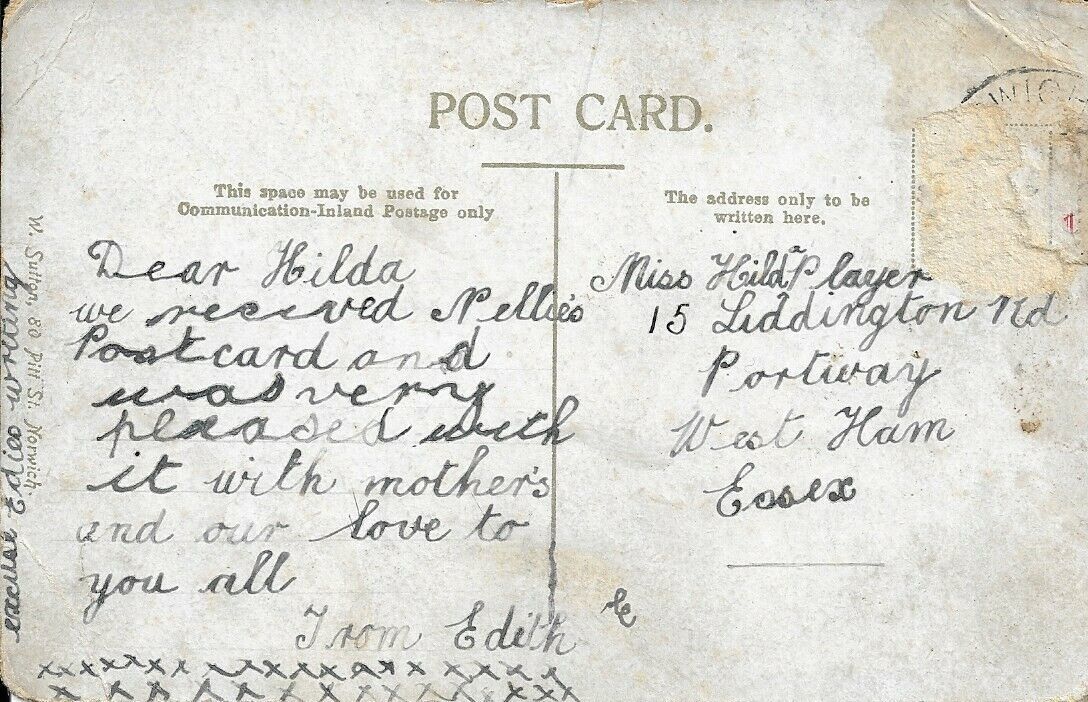 POST CARD.
This space may be used for
Communication-Inland Postage only
The address only to be
written here.
Dear Hilda
we received Nellie's
Postcard and
was very
pleased with
it with mother's
and our love to
you all
From Edith
xxxxxxxxxxxxxxxxxxxx
xxxxxxxxxxxxxxxxx
excuse Edies writing
W. Sutton, 80 Pitt St. Norwich.
Miss Hilda Player
15 Liddington Rd
Portway
West Ham
Essex